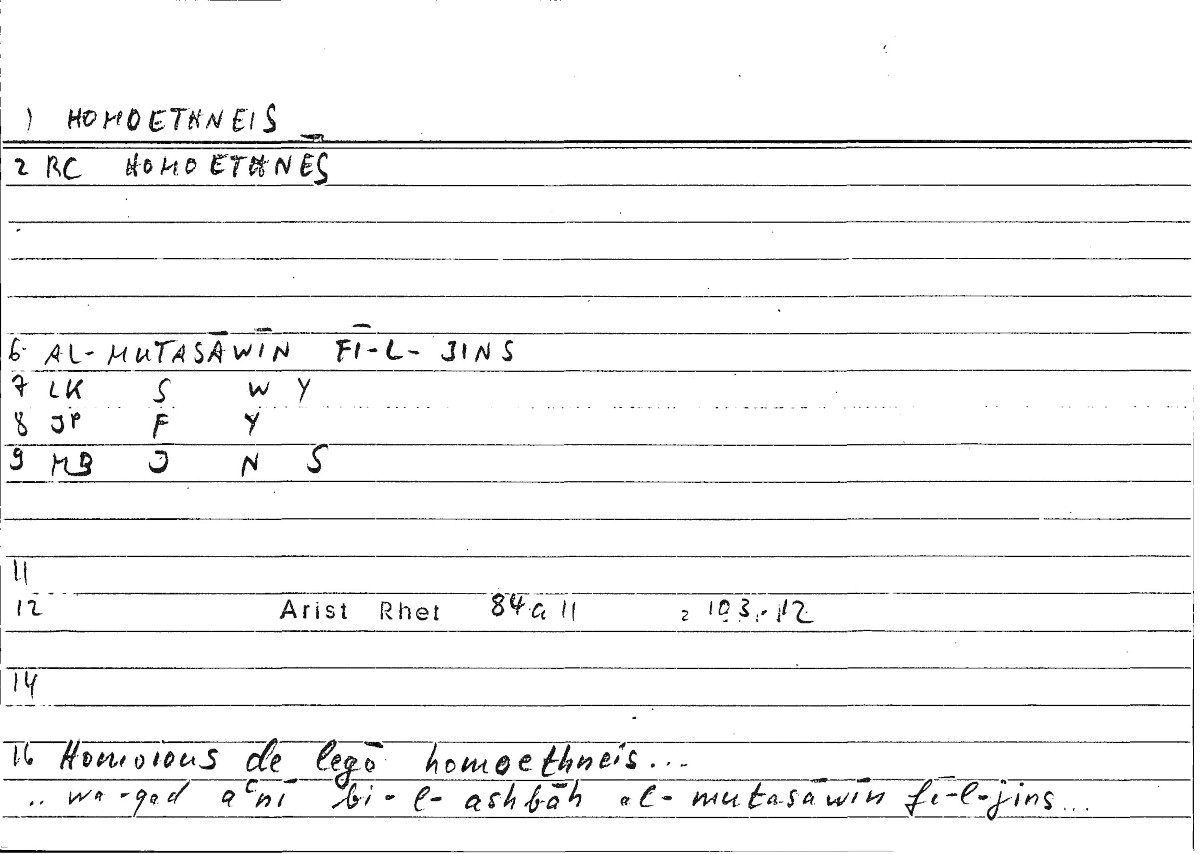 1) HOMOETHNEIS
2 RC HOMOETHNĒS
6 AL-MUTASĀWĪN FĪ-L-JINS
7 LK S W Y
8 JP F Y
9 MB J N S
11
12 Arist Rhet 84a 11 2 103,12
14
16 Homoious de legō homoethneis...
.. wa-qad aʿnī bi-l-ashbāh al-mutasāwīn fī-l-jins...